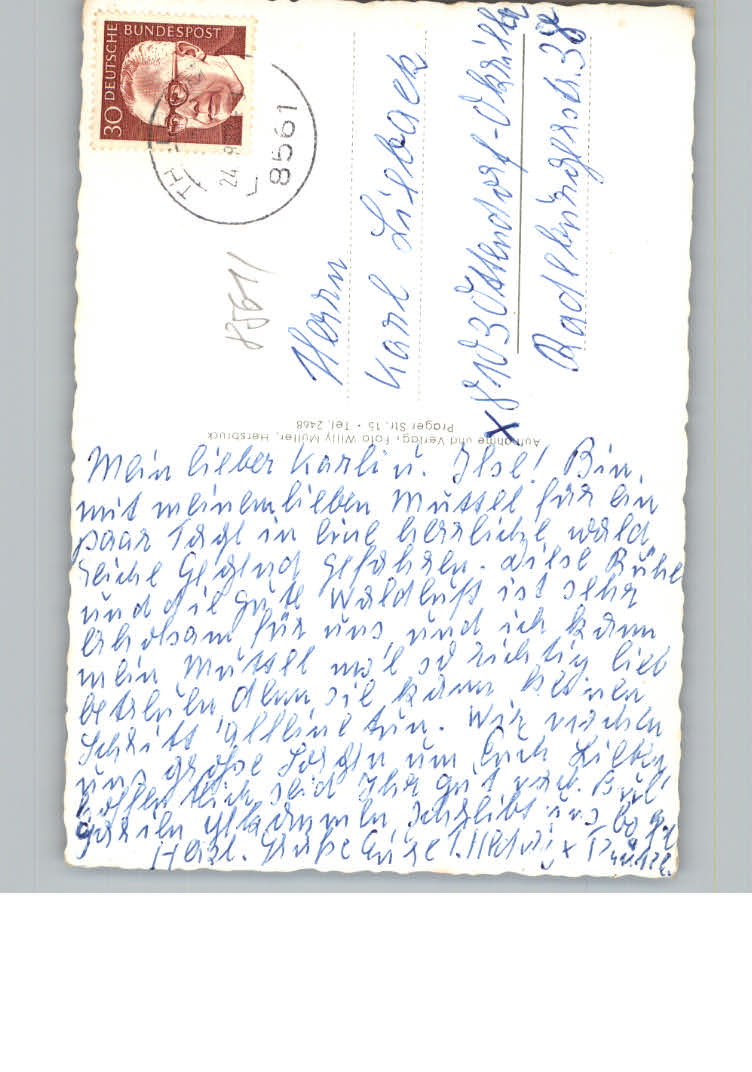 30 DEUTSCHE BUNDESPOST
24.
8561
8561/
Herrn
Karl Lieback
x 8103 Ottendorf-Okrilla
Radeburgerstr. 38
Aufnahme und Verlag, Foto Willy Müller, Hersbruck
Prager Str. 15 · Tel. 2468
Mein lieber Karli u. Ilse! Bin
mit meinem lieben Muttel für ein
paar Tage in eine herrliche wald
reiche Gegend gefahren. Diese Ruhe
und die gute Waldluft ist sehr
erholsam für uns und ich kann
mein Muttel mal so richtig lieb
betreuen, denn sie kann keinen
Schritt alleine tun. Wir machen
uns große Sorgen um Euch Lieben
hoffentlich seid Ihr gut nach
schreibt uns
Herzl. Grüße Eure T.